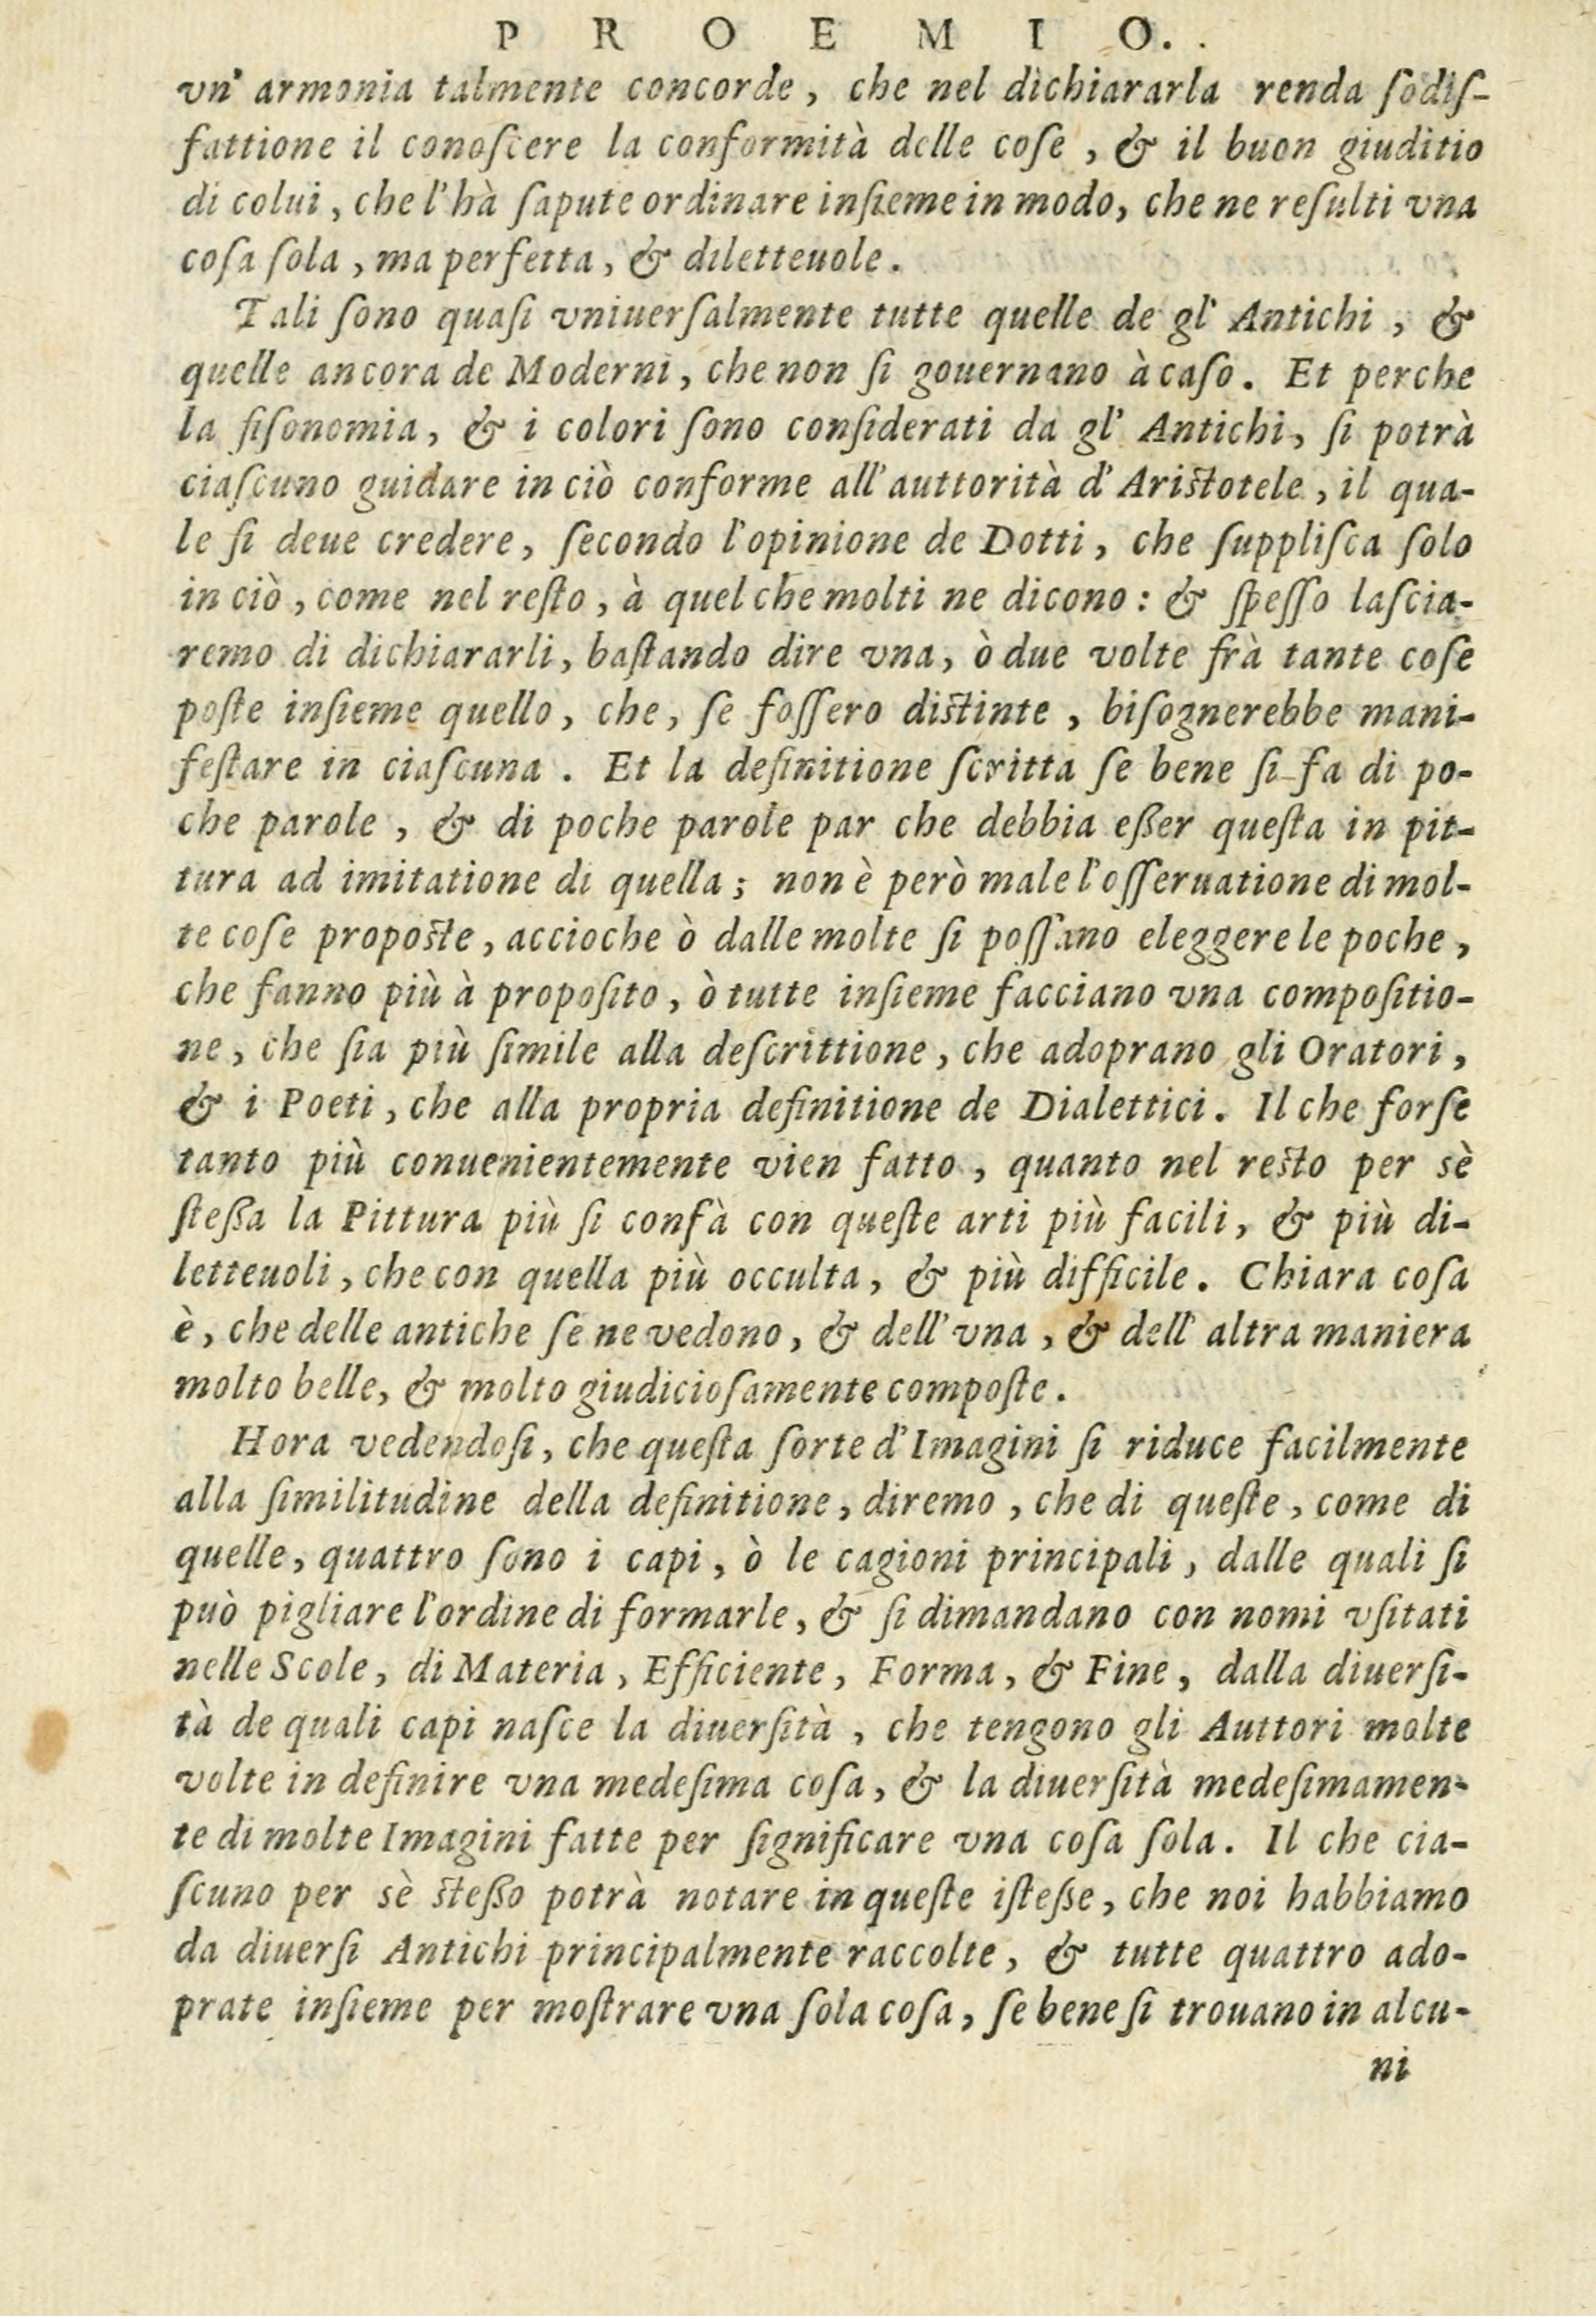 PROEMIO.
vn' armonia talmente concorde, che nel dichiararla renda ſodiſ-
fattione il conoſcere la conformità delle coſe, & il buon giuditio
di colui, che l'hà ſapute ordinare inſieme in modo, che ne reſulti vna
coſa ſola, ma perfetta, & diletteuole.
Tali ſono quaſi vniuerſalmente tutte quelle de gl' Antichi, &
quelle ancora de Moderni, che non ſi gouernano à caſo. Et perche
la fiſonomia, & i colori ſono conſiderati da gl' Antichi, ſi potrà
ciaſcuno guidare in ciò conforme all'auttorità d'Ariſtotele, il qua-
le ſi deue credere, ſecondo l'opinione de Dotti, che ſuppliſca ſolo
in ciò, come nel reſto, à quel che molti ne dicono: & ſpeſſo laſcia-
remo di dichiararli, baſtando dire vna, ò due volte frà tante coſe
poſte inſieme quello, che, ſe foſſero diſtinte, biſognerebbe mani-
feſtare in ciaſcuna. Et la definitione ſcritta ſe bene ſi fa di po-
che parole, & di poche parole par che debbia eßer queſta in pit-
tura ad imitatione di quella; non è però male l'oſſeruatione di mol-
te coſe propoſte, accioche ò dalle molte ſi poſſano eleggere le poche,
che fanno più à propoſito, ò tutte inſieme facciano vna compoſitio-
ne, che ſia più ſimile alla deſcrittione, che adoprano gli Oratori,
& i Poeti, che alla propria definitione de Dialettici. Il che forſe
tanto più conuenientemente vien fatto, quanto nel reſto per sè
ſteßa la Pittura più ſi confà con queſte arti più facili, & più di-
letteuoli, che con quella più occulta, & più difficile. Chiara coſa
è, che delle antiche ſe ne vedono, & dell'vna, & dell' altra maniera
molto belle, & molto giudicioſamente compoſte.
Hora vedendoſi, che queſta ſorte d'Imagini ſi riduce facilmente
alla ſimilitudine della definitione, diremo, che di queſte, come di
quelle, quattro ſono i capi, ò le cagioni principali, dalle quali ſi
può pigliare l'ordine di formarle, & ſi dimandano con nomi vſitati
nelle Scole, di Materia, Efficiente, Forma, & Fine, dalla diuerſi-
tà de quali capi naſce la diuerſità, che tengono gli Auttori molte
volte in definire vna medeſima coſa, & la diuerſità medeſimamen-
te di molte Imagini fatte per ſignificare vna coſa ſola. Il che cia-
ſcuno per sè ſteßo potrà notare in queſte iſteße, che noi habbiamo
da diuerſi Antichi principalmente raccolte, & tutte quattro ado-
prate inſieme per moſtrare vna ſola coſa, ſe bene ſi trouano in alcu-
ni